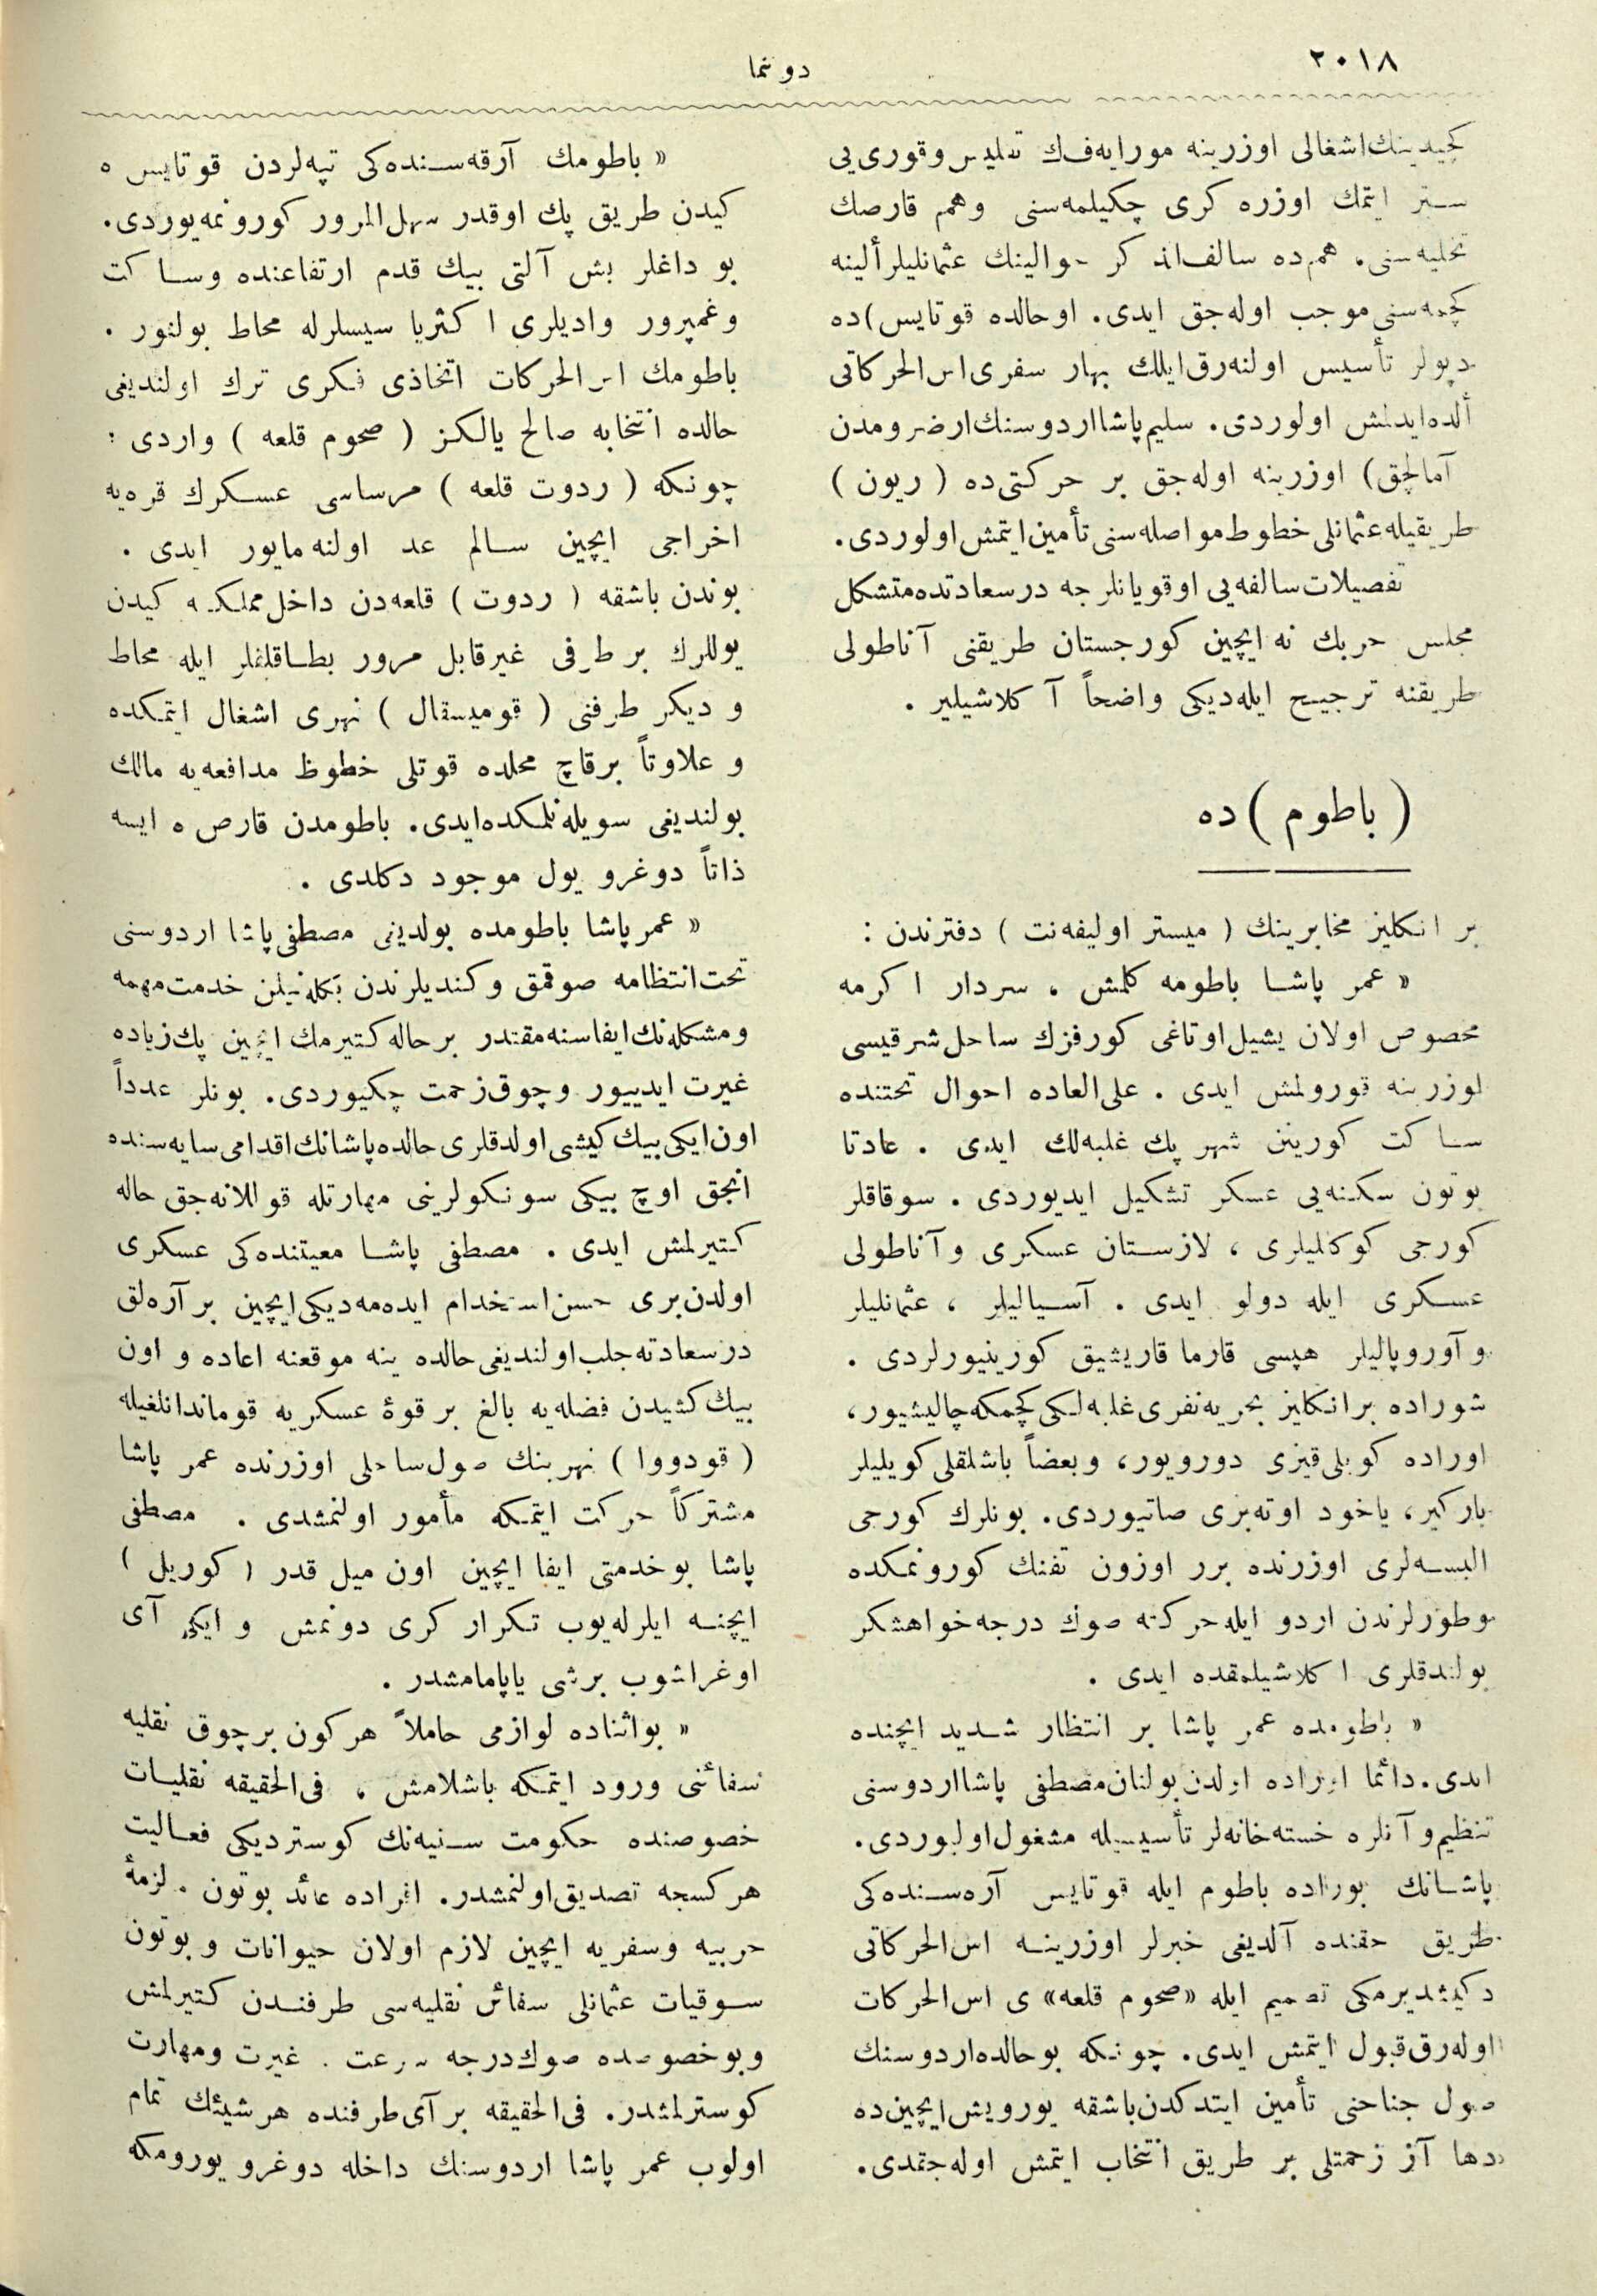 ٢٠١٨
دونما
كچیدینك اشغالی اوزرینه مورایه‌ف‌ك تفلیس وقوری‌یی
ستر ایتمك اوزره كری چكیلمه‌سنی وهم قارصك
تخلیه‌سنی. هم‌ده سالف‌الذكر حوالینك عثمانلیلر ألینه
كچمه‌سنی موجب اوله‌جق ایدی. اوحالده قوتایس)ده
دپولر تأسیس اولنه‌رق ایلك بهار سفری اس‌الحركاتی
ألده‌ایدلمش اولوردی. سلیم پاشا اردوسنك ارضرومدن
آمالچق) اوزرینه اوله‌جق بر حركتی‌ده ( ریون )
طریقیله عثمانلی خطوط مواصله‌سنی تأمین ایتمش اولوردی.
تفصیلات سالفه‌یی اوقویانلرجه درسعادتده متشكل
مجلس حربك نه ایچین كورجستان طریقنی آناطولی
طریقنه ترجیح ایله‌دیكی واضحاً آكلاشیلیر .
( باطوم ) ده
بر انكلیز مخابرینك ( میستر اولیفه‌نت ) دفترندن :
« عمر پاشا باطومه كلمش ، سردار اكرمه
مخصوص اولان یشیل اوتاغی كورفزك ساحل شرقیسی
اوزرینه قورولمش ایدی . علی‌العاده احوال تحتنده
ساكت كورینن شهر پك غلبه‌لك ایدی . عادتا
بوتون سكنه‌یی عسكر تشكیل ایدیوردی . سوقاقلر
كورجی كوكللیلری ، لازستان عسكری و آناطولی
عسكری ایله دولو ایدی . آسیالیلر ، عثمانلیلر
و آوروپالیلر هپسی قارما قاریشیق كورینیورلردی .
شوراده برانكلیز بحریه‌نفری غلبه‌لكی كچمكه چالیشیور،
اوراده كویلی قیزی دورویور، وبعضاً باشلقلی كویلیلر
باركیر، یاخود اوته‌بری صاتیوردی. بونلرك كورجی
البسه‌لری اوزرنده برر اوزون تفنك كورونمكده
وطورلرندن اردو ایله حركته صوك درجه خواهشكر
بولندقلری اكلاشیلمقده ایدی .
« باطومده عمر پاشا بر انتظار شدید ایچنده
ایدی. دائما اوراده اولدن بولنان مصطفی پاشا اردوسنی
تنظیم و آنلره خسته‌خانه‌لر تأسیسیله مشغول اولیوردی.
پاشانك بوراده باطوم ایله قوتایس آره‌سنده‌كی
طریق حقنده آلدیغی خبرلر اوزرینه اس‌الحركاتی
دكیشدیرمكی تصمیم ایله «صحوم قلعه» ی اس‌الحركات
اوله‌رق قبول ایتمش ایدی. چونكه بوحالده اردوسنك
صول جناحنی تأمین ایتدكدن باشقه یورویش ایچین‌ده
دها آز زحمتلی بر طریق انتخاب ایتمش اوله‌جقدی.
« باطومك آرقه‌سنده‌كی تپه‌لردن قوتایس ه
كیدن طریق پك اوقدر سهل‌المرور كورونمه‌یوردی.
بو داغلر بش آلتی بیك قدم ارتفاعنده وساكت
وغمپرور وادیلری اكثریا سیسلرله محاط بولنور .
باطومك اس‌الحركات اتخاذی فكری ترك اولندیغی
حالده انتخابه صالح یالكز ( صحوم قلعه ) واردی ؛
چونكه ( ردوت قلعه ) مرساسی عسكرك قره‌یه
اخراجی ایچین سالم عد اولنه‌مایور ایدی .
بوندن باشقه ( ردوت ) قلعه‌دن داخل مملكته كیدن
یوللرك بر طرفی غیرقابل مرور بطاقلقلر ایله محاط
و دیكر طرفنی ( قومیسقال ) نهری اشغال ایتمكده
و علاوتاً برقاچ محلده قوتلی خطوظ مدافعه‌یه مالك
بولندیغی سویله‌نلمكده‌ایدی. باطومدن قارص ه ایسه
ذاتاً دوغرو یول موجود دكلدی .
« عمرپاشا باطومده بولدیغی مصطفی پاشا اردوسنی
تحت انتظامه صوقمق وكندیلرندن بكله‌نیلن خدمت مهمه
ومشكله‌نك ایفاسنه مقتدر برحاله كتیرمك ایچین پك زیاده
غیرت ایدییور وچوق زحمت چكیوردی. بونلر عدداً
اون‌ایكی بیك كیشی اولدقلری حالده پاشانك اقدامی سایه‌سنده
انجق اوچ بیكی سونكولرینی مهارتله قوللانه‌جق حاله
كتیرلمش ایدی . مصطفی پاشا معیتنده‌كی عسكری
اولدن‌بری حسن استخدام ایده‌مه‌دیكی ایچین بر آره‌لق
درسعادته جلب اولندیغی حالده ینه موقعنه اعاده و اون
بیك كشیدن فضله‌یه بالغ بر قوۀ عسكریه قوماندانلغیله
( قودووا ) نهرینك صول ساحلی اوزرنده عمر پاشا
مشتركاً حركت ایتمكه مأمور اولنمشدی . مصطفی
پاشا بو خدمتی ایفا ایچین اون میل قدر ( كوریل )
ایچنه ایلرله‌یوب تكرار كری دونمش و ایكی آی
اوغراشوب برشی یاپامامشدر .
« بواثناده لوازمی حاملاً هركون برچوق نقلیه
سفائنی ورود ایتمكه باشلامش ، فی‌الحقیقه نقلیات
خصوصنده حكومت سنیه‌نك كوستردیكی فعالیت
هر كسجه تصدیق اولنمشدر. افراده عائد بوتون لزمۀ
حربیه وسفریه ایچین لازم اولان حیوانات و بوتون
سوقیات عثمانلی سفائن نقلیه‌سی طرفندن كتیرلمش
و بو خصوصده صوك درجه سرعت . غیرت ومهارت
كوسترلمشدر. فی‌الحقیقه بر آی طرفنده هر شیئك تمام
اولوب عمر پاشا اردوسنك داخله دوغرو یورومكه